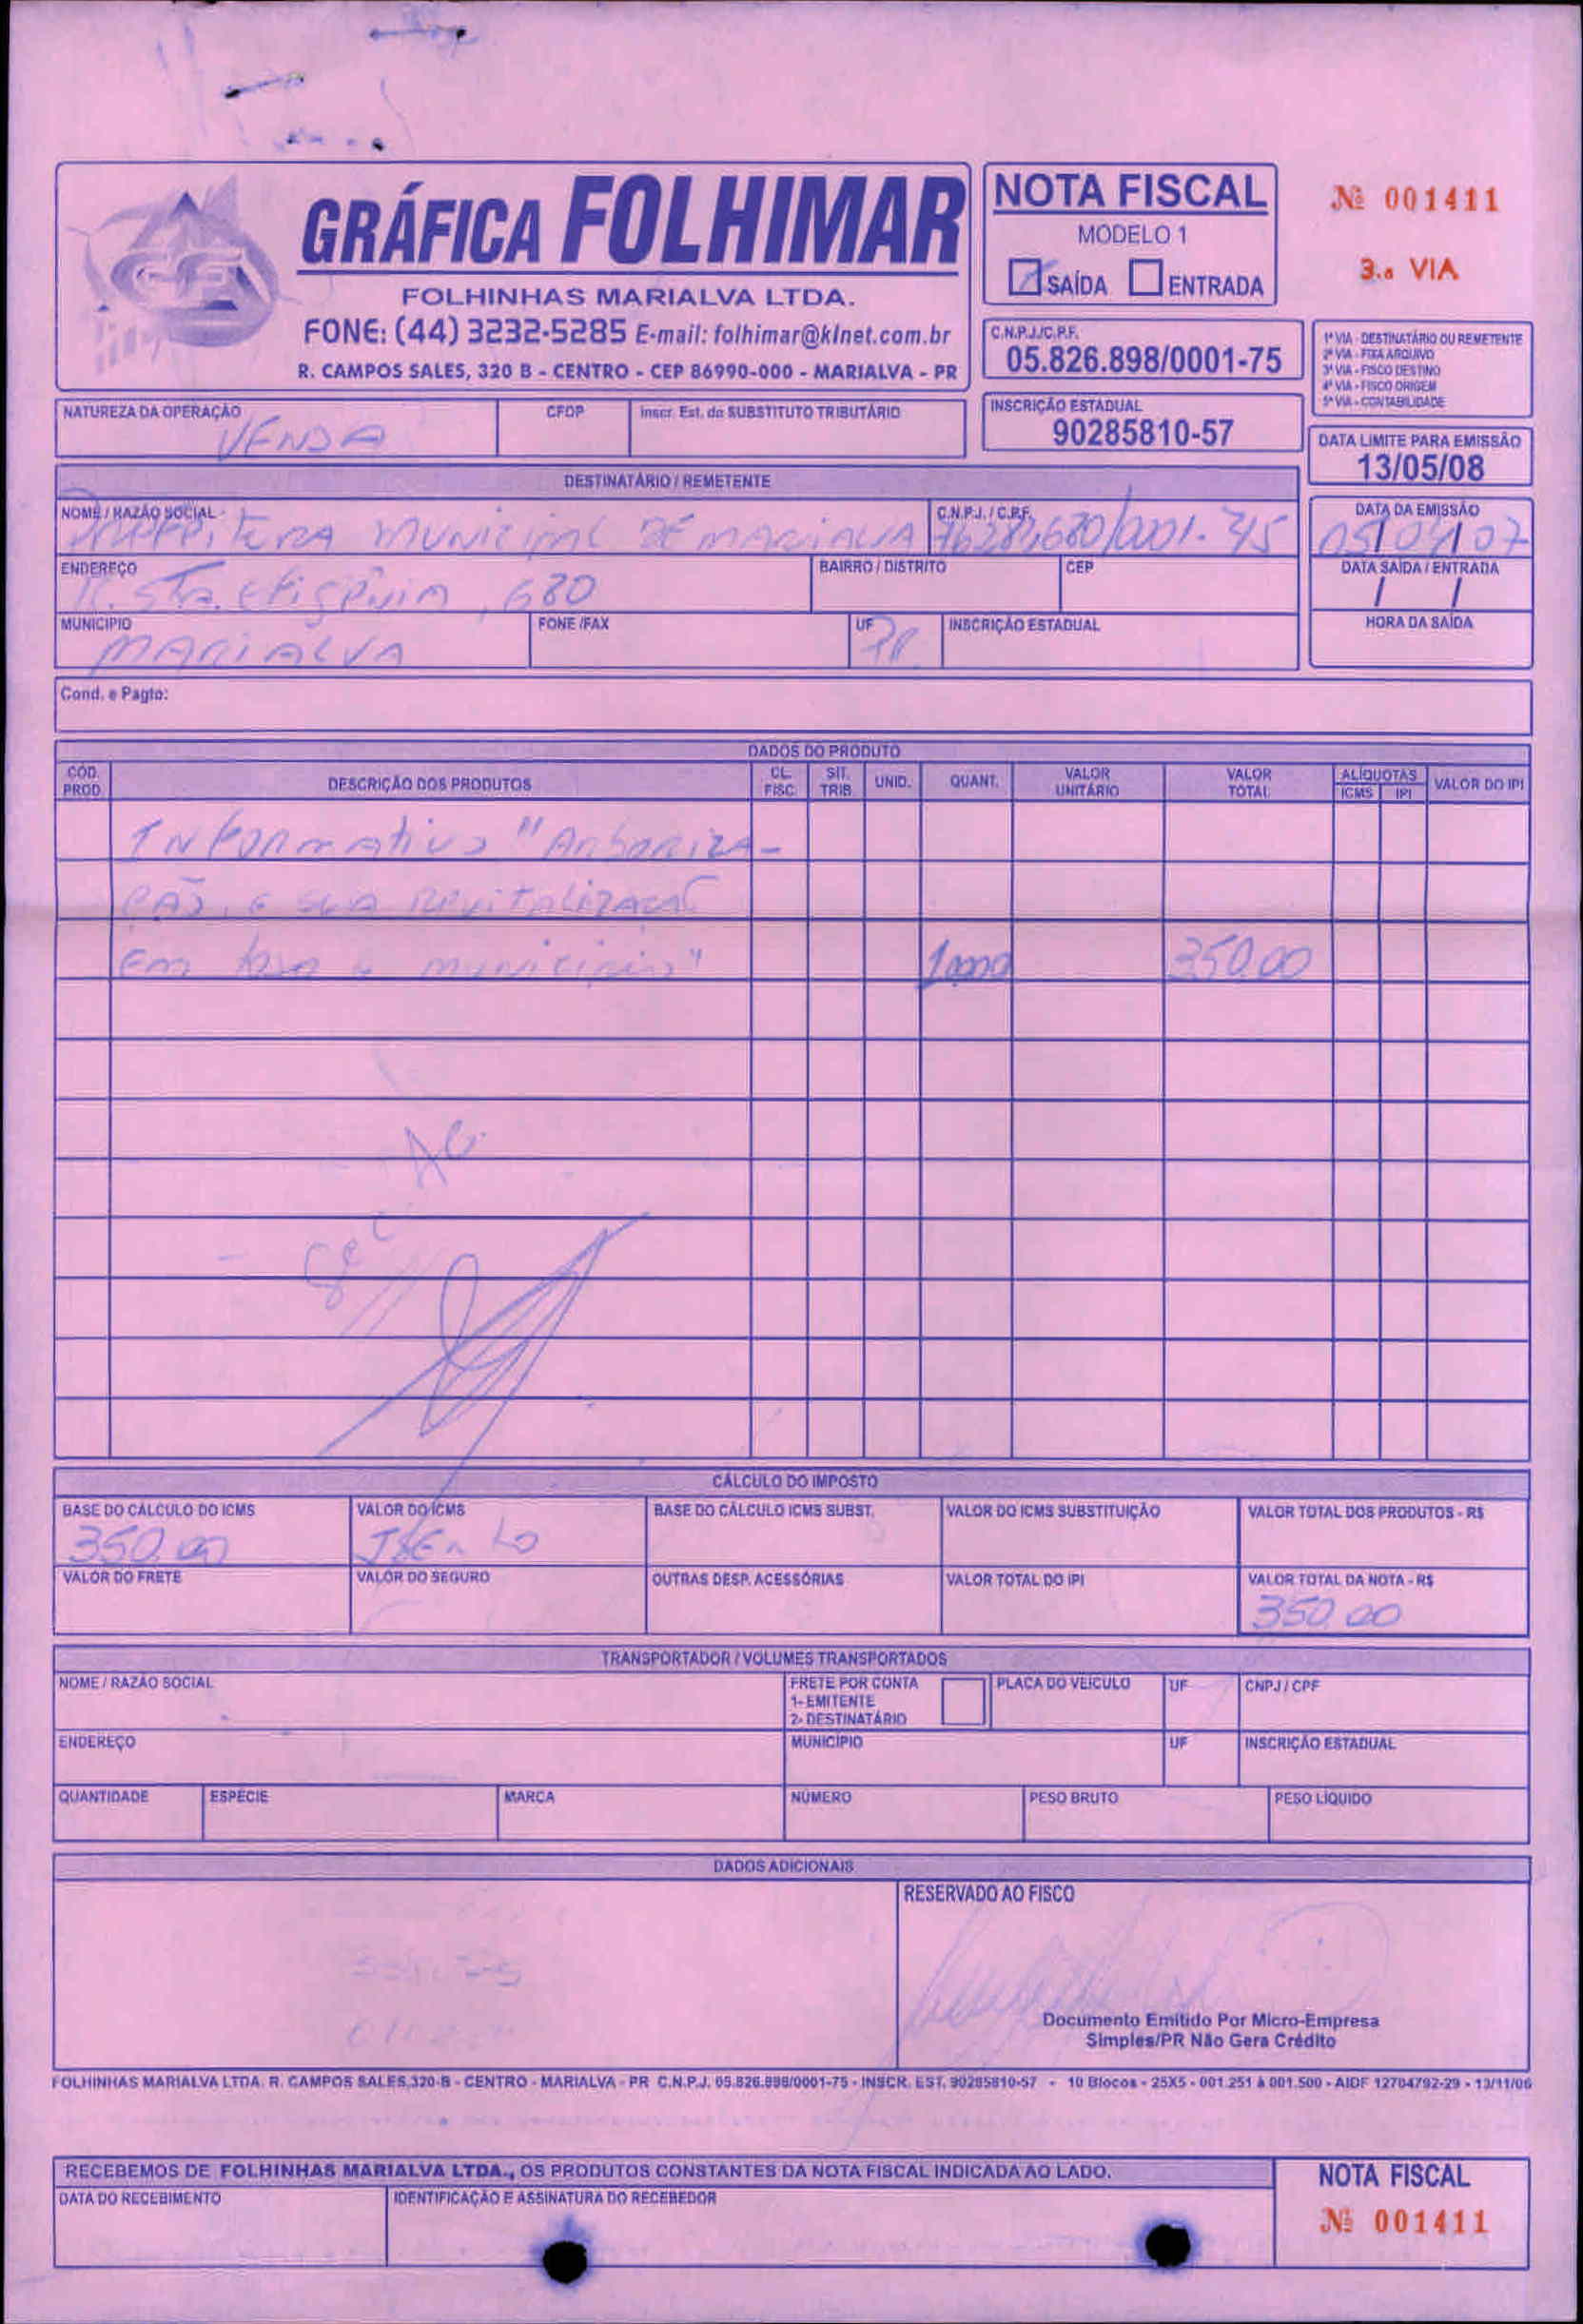 GRÁFICA FOLHIMAR
FOLHINHAS MARIALVA LTDA.
FONE: (44) 3232-5285 E-mail: folhimar@klnet.com.br
R. CAMPOS SALES, 320 B - CENTRO - CEP 86990-000 - MARIALVA - PR
NOTA FISCAL
MODELO 1
SAÍDA ENTRADA
Nº 001411
3.ª VIA
C.N.P.J./C.P.F.
05.826.898/0001-75
1ª VIA - DESTINATÁRIO OU REMETENTE
2ª VIA - FIXA ARQUIVO
3ª VIA - FISCO DESTINO
4ª VIA - FISCO ORIGEM
5ª VIA - CONTABILIDADE
NATUREZA DA OPERAÇÃO CFOP Inscr. Est. do SUBSTITUTO TRIBUTÁRIO
VENDA
INSCRIÇÃO ESTADUAL
90285810-57
DATA LIMITE PARA EMISSÃO
13/05/08
DESTINATÁRIO / REMETENTE
NOME / RAZÃO SOCIAL C.N.P.J. / C.P.F. DATA DA EMISSÃO
Prefeitura MUNICIPAL DE MARIALVA /0001-45 05/04/07
ENDEREÇO BAIRRO / DISTRITO CEP DATA SAÍDA / ENTRADA
R. Sta. Efigênia, 680 / /
MUNICIPIO FONE /FAX UF INSCRIÇÃO ESTADUAL HORA DA SAÍDA
MARIALVA PR.
Cond. e Pagto:
DADOS DO PRODUTO
CÓD. PROD. DESCRIÇÃO DOS PRODUTOS CL. FISC. SIT. TRIB. UNID. QUANT. VALOR UNITÁRIO VALOR TOTAL ALÍQUOTAS ICMS IPI VALOR DO IPI
INFormativo "Arboriza-
ção e sua Revitalização
Em todo o município" 1.000 350,00
CÁLCULO DO IMPOSTO
BASE DO CÁLCULO DO ICMS VALOR DO ICMS BASE DO CÁLCULO ICMS SUBST. VALOR DO ICMS SUBSTITUIÇÃO VALOR TOTAL DOS PRODUTOS - R$
350,00 ISENTO
VALOR DO FRETE VALOR DO SEGURO OUTRAS DESP. ACESSÓRIAS VALOR TOTAL DO IPI VALOR TOTAL DA NOTA - R$
350,00
TRANSPORTADOR / VOLUMES TRANSPORTADOS
NOME / RAZÃO SOCIAL FRETE POR CONTA PLACA DO VEÍCULO UF CNPJ / CPF
1- EMITENTE
2- DESTINATÁRIO
ENDEREÇO MUNICÍPIO UF INSCRIÇÃO ESTADUAL
QUANTIDADE ESPÉCIE MARCA NÚMERO PESO BRUTO PESO LÍQUIDO
DADOS ADICIONAIS
RESERVADO AO FISCO
Documento Emitido Por Micro-Empresa
Simples/PR Não Gera Crédito
FOLHINHAS MARIALVA LTDA. R. CAMPOS SALES,320-B - CENTRO - MARIALVA - PR C.N.P.J. 05.826.898/0001-75 - INSCR. EST. 90285810-57 - 10 Blocos - 25X5 - 001.251 à 001.500 - AIDF 12704792-29 - 13/11/06
RECEBEMOS DE FOLHINHAS MARIALVA LTDA., OS PRODUTOS CONSTANTES DA NOTA FISCAL INDICADA AO LADO.
DATA DO RECEBIMENTO IDENTIFICAÇÃO E ASSINATURA DO RECEBEDOR
NOTA FISCAL
Nº 001411